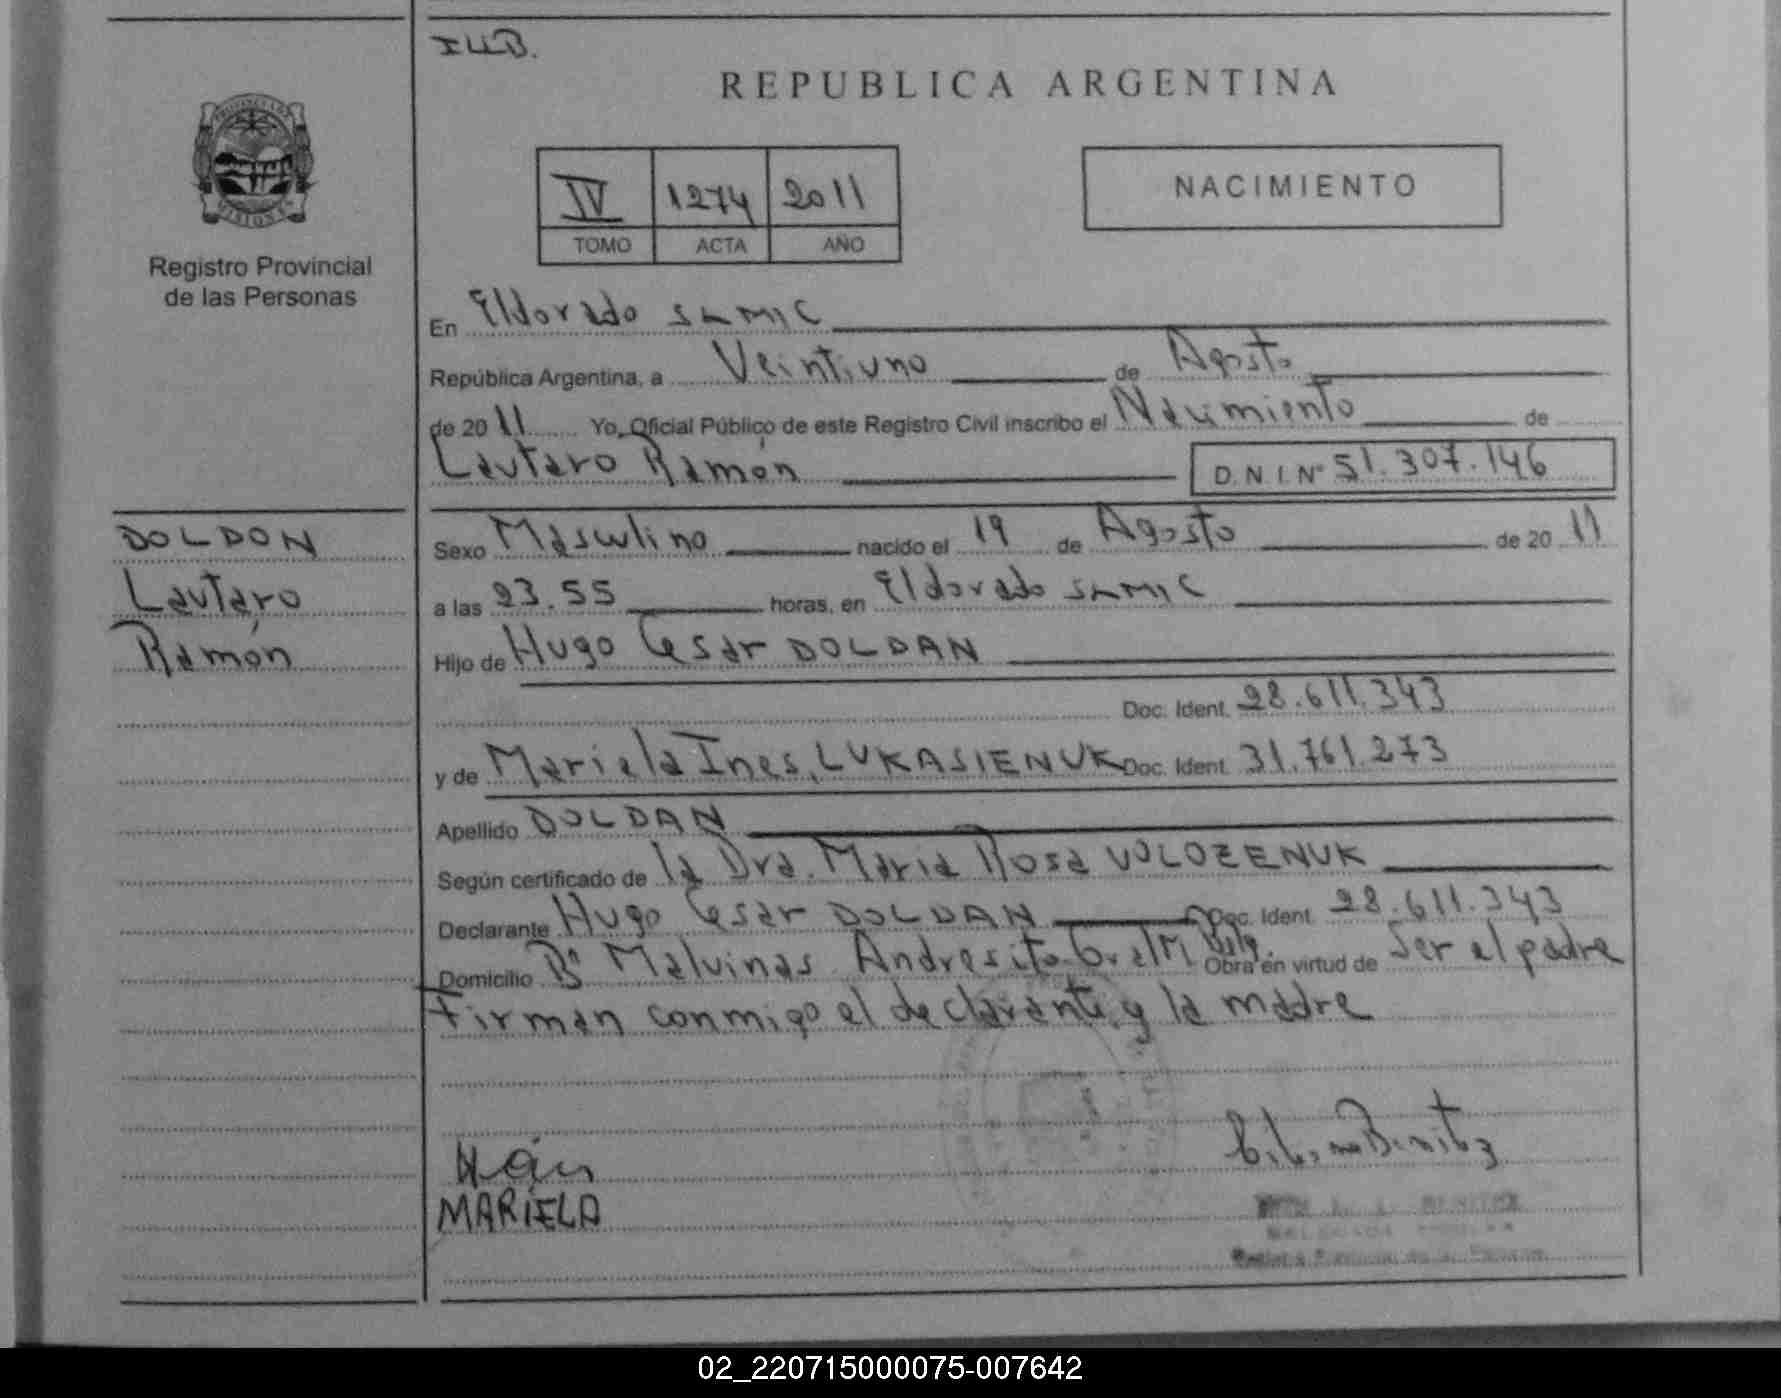 I.LL.B.
REPUBLICA ARGENTINA
PROVINCIA DE
MISIONES
Registro Provincial
de las Personas
IV 1274 2011
TOMO ACTA AÑO
NACIMIENTO
En Eldorado SAMIC
República Argentina, a Veintiuno de Agosto
de 2011 Yo, Oficial Público de este Registro Civil inscribo el Nacimiento de
Lautaro Ramón D.N.I. Nº 51.307.146
DOLDON
Lautaro
Ramón
Sexo Masculino nacido el 19 de Agosto de 2011
a las 23.55 horas, en Eldorado SAMIC
Hijo de Hugo Cesar DOLDAN
Doc. Ident. 28.611.343
y de Mariela Ines, LUKASIENUK Doc. Ident. 31.761.273
Apellido DOLDAN
Según certificado de la Dra. Maria Rosa VOLOZENUK
Declarante Hugo Cesar DOLDAN Doc. Ident. 28.611.343
Domicilio Bº Malvinas Andresito Gral M Belg. Obra en virtud de Ser el padre
Firman conmigo el declarante y la madre
MARIELA